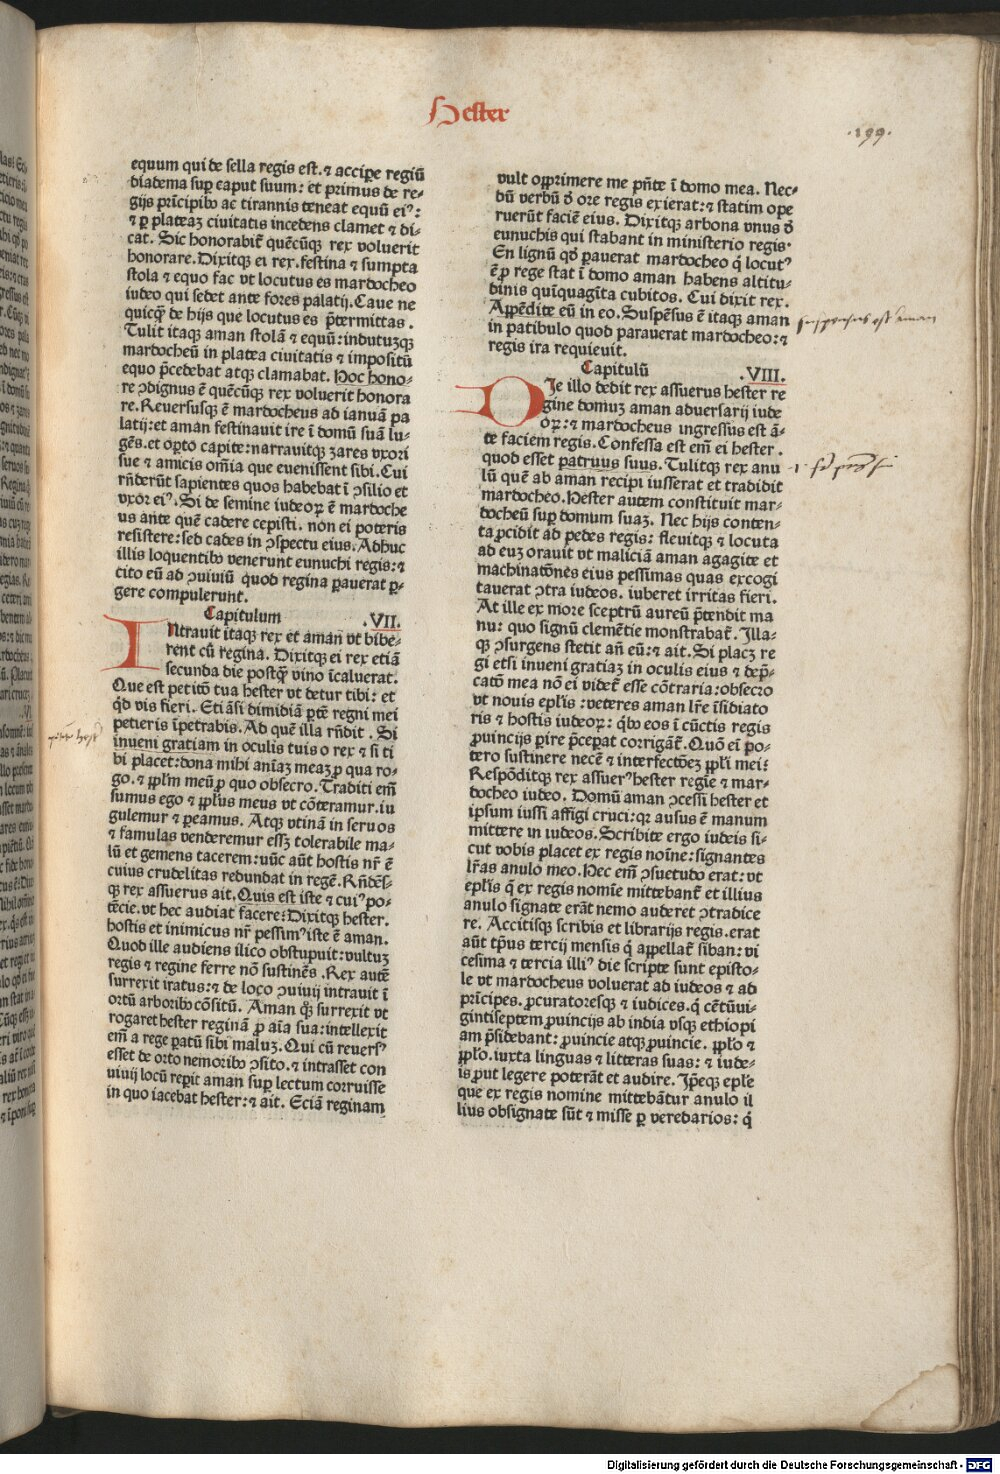 Hester
.199.
equum qui de sella regis est.⁊ accipe regiū
diadema sup caput suum: et primus de re⸗
gijs prīcipibꝰ ac tirannis teneat equū eiꝰ:
⁊ ꝑ plateaꝫ ciuitatis incedens clamet ⁊ di⸗
cat. Sic honorabit̄ quēcūqꝫ rex voluerit
honorare. Dixitqꝫ ei rex. festina ⁊ sumpta
stola ⁊ equo fac vt locutus es mardocheo
iudeo qui sedet ante fores palatij. Caue ne
quicqꝫ de hijs que locutus es p̄termittas.
Tulit itaqꝫ aman stolā ⁊ equū: indutuꝫqꝫ
mardocheū in platea ciuitatis ⁊ impositū
equo p̄cedebat atqꝫ clamabat. Hoc hono⸗
re ꝯdignus ē quēcūqꝫ rex voluerit honora
re. Reuersusqꝫ ē mardocheus ad ianuā pa
latij: et aman festinauit ire ī domū suā lu⸗
gēs. et oꝑto capite: narrauitqꝫ zares vxori
sue ⁊ amicis om̄ia que euenissent sibi. Cui
rn̄derūt sapientes quos habebat ī ꝯsilio et
vxor eiꝰ. Si de semine iudeoꝝ ē mardoche
us ante quē cadere cepisti. non ei poteris
resistere: sed cades in ꝯspectu eius. Adhuc
illis loquentibꝰ venerunt eunuchi regis: ⁊
cito eū ad ꝯuiuiū quod regina ꝑauerat ꝑ⸗
gere compulerunt.
Capitulum .VII.
INtrauit itaqꝫ rex et aman vt bibe⸗
rent cū regina. Dixitqꝫ ei rex etiā
secunda die postqꝫ vino īcaluerat.
Que est petitō tua hester vt detur tibi: et
qd̄ vis fieri. Eti āsi dimidiā ꝑtē regni mei
petieris īpetrabis. Ad quē illa rn̄dit. Si
inueni gratiam in oculis tuis o rex ⁊ si ti
bi placet: dona mihi aīaꝫ meaꝫ ꝓ qua ro⸗
go. ⁊ pplm̄ meū ꝓ quo obsecro. Traditi em̄
sumus ego ⁊ pplus meus vt cōteramur. iu
gulemur ⁊ ꝑeamus. Atqꝫ vtinā in seruos
⁊ famulas venderemur essꝫ tolerabile ma⸗
lū et gemens tacerem: nūc aūt hostis nr̄ ē
cuius crudelitas redundat in regē. Rn̄dēs⸗
qꝫ rex assuerus ait. Quis est iste ⁊ cuiꝰ po⸗
tēcie. vt hec audiat facere: Dixitqꝫ hester.
hostis et inimicus nr̄ pessimꝰ iste ē aman.
Quod ille audiens ilico obstupuit: vultuꝫ
regis ⁊ regine ferre nō sustinēs. Rex autē
surrexit iratus: ⁊ de loco ꝯuiuij intrauit ī
ortū arboribꝰ cōsitū. Aman qꝫ surrexit vt
rogaret hester reginā ꝓ aīa sua: intellexit
em̄ a rege ꝑatū sibi maluꝫ. Qui cū reuersꝰ
esset de orto nemoribꝰ ꝯsito. ⁊ intrasset con
uiuij locū reꝑit aman suꝑ lectum corruisse
in quo iacebat hester: ⁊ ait. Eciā reginam
vult opprimere me pn̄te ī domo mea. Nec⸗
dū verbū d̄ ore regis exierat: ⁊ statim ope
ruerūt faciē eius. Dixitqꝫ arbona vnus d̄
eunuchis qui stabant in ministerio regis.
En lignū qd̄ ꝑauerat mardocheo q̄ locutꝰ
ē ꝓ rege stat ī domo aman habens altitu⸗
dinis quīquagīta cubitos. Cui dixit rex.
Appēdite eū in eo. Suspēsus ē itaqꝫ aman
in patibulo quod parauerat mardocheo: ⁊
regis ira requieuit.
suspensus est aman
Capitulū .VIII.
DIe illo dedit rex assuerus hester re
gine domuꝫ aman aduersarij iude
oꝝ: ⁊ mardocheus ingressus est ā⸗
te faciem regis. Confessa est em̄ ei hester.
quod esset patruus suus. Tulitqꝫ rex anu
lū quē ab aman recipi iusserat et tradidit
mardocheo. Hester autem constituit mar⸗
docheū suꝑ domum suaꝫ. Nec hijs conten⸗
ta ꝓcidit ad pedes regis: fleuitqꝫ ⁊ locuta
ad euꝫ orauit vt maliciā aman agagite et
machinatōnes eius pessimas quas excogi
tauerat ꝯtra iudeos. iuberet irritas fieri.
At ille ex more sceptrū aureū p̄tendit ma
nu: quo signū clemētie monstrabat̄. Illa⸗
qꝫ ꝯsurgens stetit an̄ eū: ⁊ ait. Si placꝫ re
gi etsi inueni gratiaꝫ in oculis eius ⁊ dep̄⸗
catō mea nō ei videt̄ esse cōtraria: obsecro
vt nouis eplis: veteres aman lr̄e īsidiato
ris ⁊ hostis iudeoꝝ: qͥbꝰ eos ī cūctis regis
ꝓuincijs ꝑire p̄ceꝑat corrigāt̄. Quō ei po⸗
tero sustinere necē ⁊ interfectōeꝫ ppli mei:
Respōditqꝫ rex assuerꝰ hester regīe ⁊ mar⸗
docheo iudeo. Domū aman ꝯcessi hester et
ipsum iussi affigi cruci: qꝛ ausus ē manum
mittere in iudeos. Scribite ergo iudeis si⸗
cut vobis placet ex regis noīne: signantes
lr̄as anulo meo. Hec em̄ ꝯsuetudo erat: vt
eplis q̄ ex regis nomīe mittebant̄ et illius
anulo signate erāt nemo auderet ꝯtradice
re. Accitisqꝫ scribis et librarijs regis. erat
aūt tp̄us tercij mensis q̄ appellat̄ siban: vi
cesima ⁊ tercia illiꝰ die scripte sunt episto⸗
le vt mardocheus voluerat ad iudeos ⁊ ad
prīcipes. ꝓcuratoresqꝫ ⁊ iudices. q̄ cētūui⸗
gintiseptem ꝓuincijs ab india vsqꝫ ethiopi
am p̄sidebant: ꝓuincie atqꝫ ꝓuincie. pplo ⁊
pplo. iuxta linguas ⁊ litteras suas: ⁊ iude⸗
is ꝓut legere poterāt et audire. Ip̄eqꝫ eple
que ex regis nomine mittebātur anulo il
lius obsignate sūt ⁊ misse ꝑ veredarios: q̄
Digitalisierung gefördert durch die Deutsche Forschungsgemeinschaft - DFG